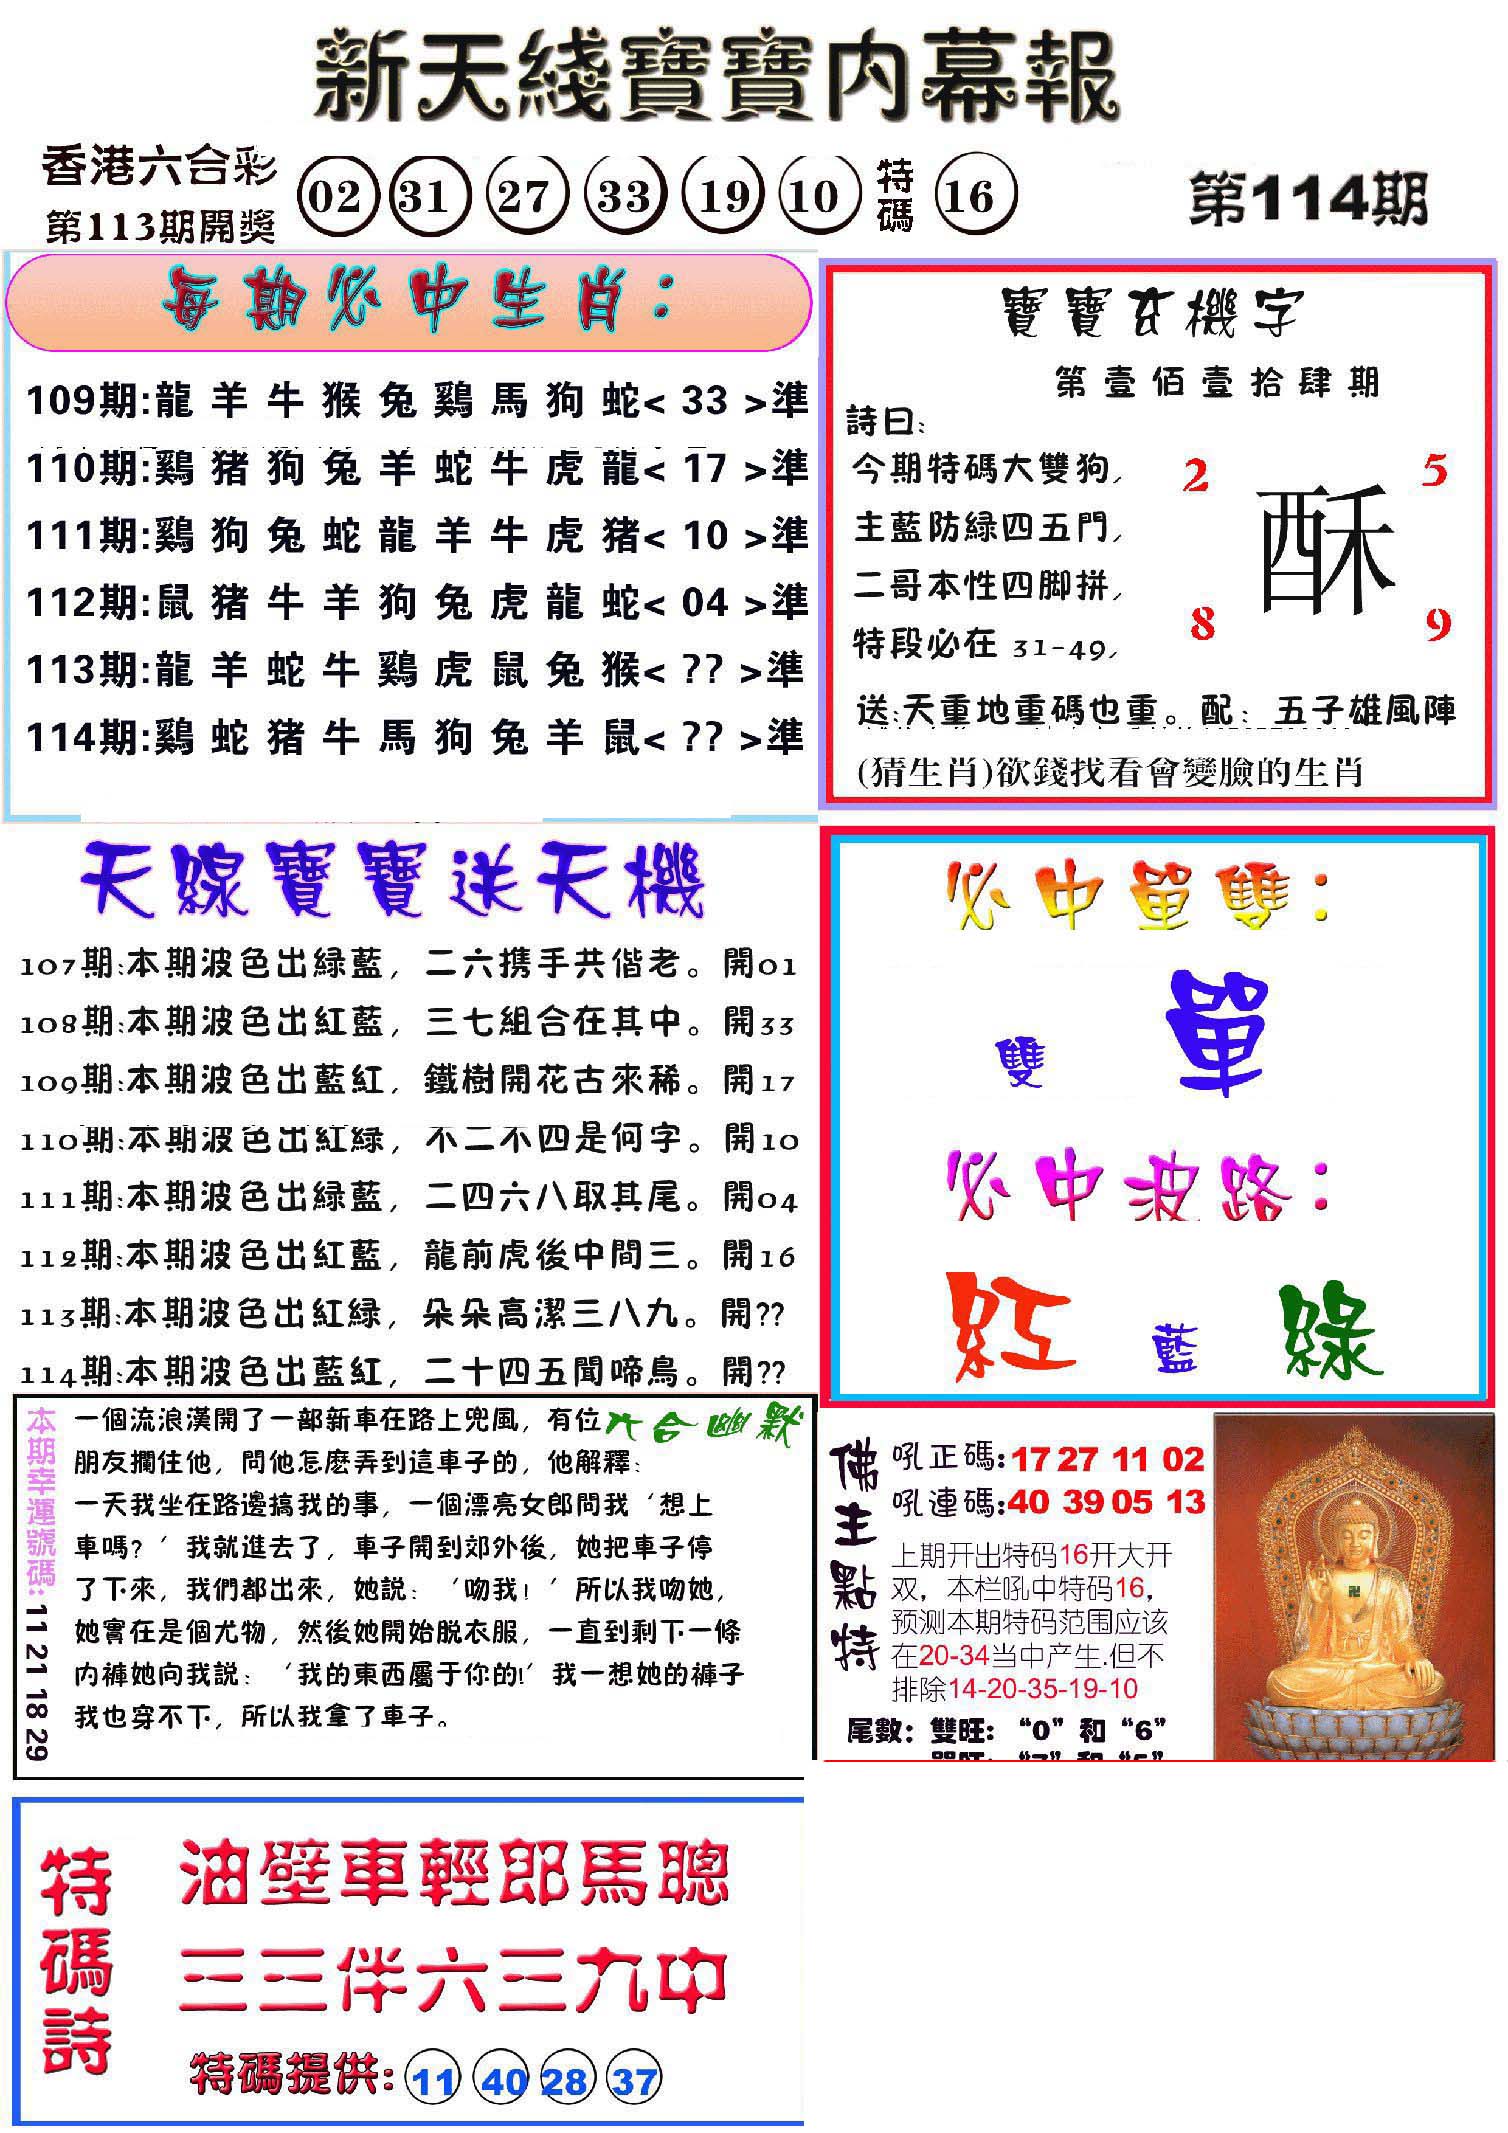 新天綫寶寶内幕報
香港六合彩
第113期開獎
02 31 27 33 19 10 特碼 16
第114期
每期必中生肖：
109期:龍 羊 牛 猴 兔 鷄 馬 狗 蛇< 33 >準
110期:鷄 猪 狗 兔 羊 蛇 牛 虎 龍< 17 >準
111期:鷄 狗 兔 蛇 龍 羊 牛 虎 猪< 10 >準
112期:鼠 猪 牛 羊 狗 兔 虎 龍 蛇< 04 >準
113期:龍 羊 蛇 牛 鷄 虎 鼠 兔 猴< ?? >準
114期:鷄 蛇 猪 牛 馬 狗 兔 羊 鼠< ?? >準
寶寶玄機字
第壹佰壹拾肆期
詩曰:
今期特碼大雙狗,
主藍防緑四五門,
二哥本性四脚拼,
特段必在 31-49,
2 5
酥
8 9
送:天重地重碼也重。配: 五子雄風陣
(猜生肖)欲錢找看會變臉的生肖
天線寶寶送天機
107期:本期波色出緑藍, 二六携手共偕老。開01
108期:本期波色出紅藍, 三七組合在其中。開33
109期:本期波色出藍紅, 鐵樹開花古來稀。開17
110期:本期波色出紅緑, 不二不四是何字。開10
111期:本期波色出緑藍, 二四六八取其尾。開04
112期:本期波色出紅藍, 龍前虎後中間三。開16
113期:本期波色出紅緑, 朵朵高潔三八九。開??
114期:本期波色出藍紅, 二十四五聞啼鳥。開??
必中單雙：
雙 單
必中波路：
紅 藍 綠
本期幸運號碼: 11 21 18 29
六合幽默
一個流浪漢開了一部新車在路上兜風, 有位
朋友攔住他, 問他怎麽弄到這車子的, 他解釋:
一天我坐在路邊搞我的事, 一個漂亮女郎問我‘想上
車嗎?’我就進去了, 車子開到郊外後, 她把車子停
了下來, 我們都出來, 她説: ‘吻我!’所以我吻她,
她實在是個尤物, 然後她開始脱衣服, 一直到剩下一條
内褲她向我説: ‘我的東西屬于你的!’我一想她的褲子
我也穿不下, 所以我拿了車子。
佛主點特
吼正碼:17 27 11 02
吼連碼:40 39 05 13
上期开出特码16开大开
双，本栏吼中特码16，
预测本期特码范围应该
在20-34当中产生.但不
排除14-20-35-19-10
尾數：雙旺：“0”和“6”
特碼詩
油壁車輕郎馬聰
三三伴六三九中
特碼提供: 11 40 28 37